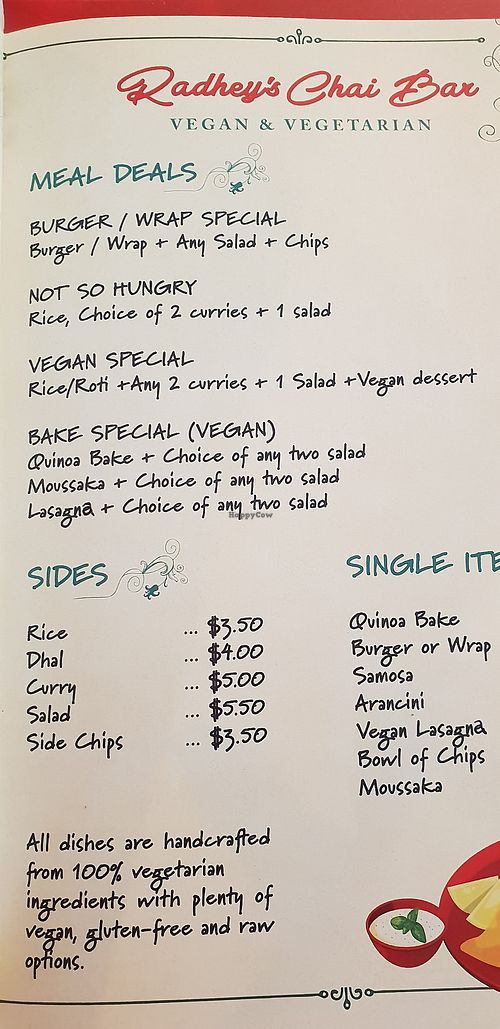 Radhey's Chai Bar
VEGAN & VEGETARIAN
MEAL DEALS
BURGER / WRAP SPECIAL
Burger / Wrap + Any Salad + Chips
NOT SO HUNGRY
Rice, Choice of 2 curries + 1 salad
VEGAN SPECIAL
Rice/Roti +Any 2 curries + 1 Salad +Vegan dessert
BAKE SPECIAL (VEGAN)
Quinoa Bake + Choice of any two salad
Moussaka + Choice of any two salad
Lasagna + Choice of any two salad
HappyCow
SIDES
Rice ... $3.50
Dhal ... $4.00
Curry ... $5.00
Salad ... $5.50
Side Chips ... $3.50
SINGLE ITE
Quinoa Bake
Burger or Wrap
Samosa
Arancini
Vegan Lasagna
Bowl of Chips
Moussaka
All dishes are handcrafted
from 100% vegetarian
ingredients with plenty of
vegan, gluten-free and raw
options.